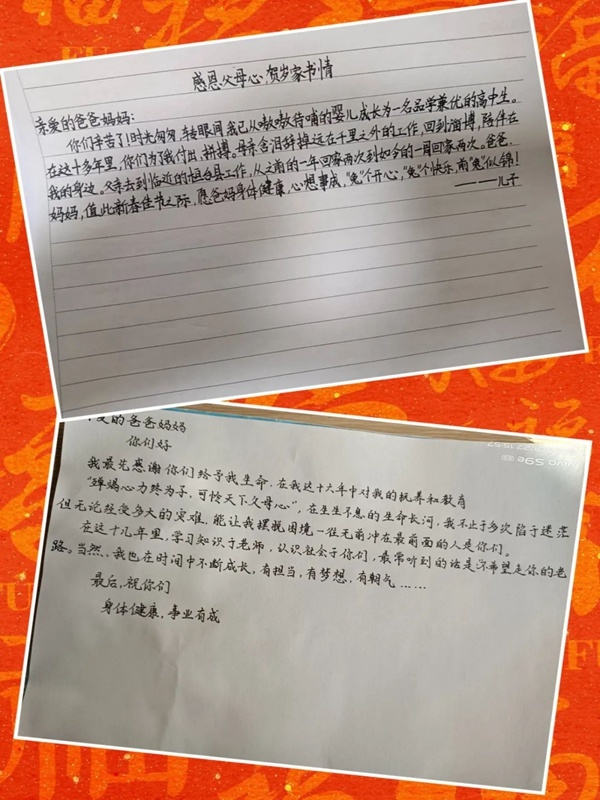 感恩父母心,贺岁家书情
亲爱的爸爸妈妈:
你们辛苦了!时光匆匆,转眼间我已从嗷嗷待哺的婴儿成长为一名品学兼优的高中生。
在这十多年里,你们为了我付出、拼搏。母亲含泪辞掉远在千里之外的工作,回到淄博,陪伴在
我的身边。父亲去到临近的桓台县工作,从之前的一年回家两次到如今的一周回家两次。爸爸、
妈妈,值此新春佳节之际,愿爸妈身体健康,心想事成,"兔"个开心,"兔"个快乐,前"兔"似锦!
——儿子
爱的爸爸妈妈
你们好
我最先感谢你们给予我生命,在我这十六年中对我的抚养和教育
"殚竭心力终为子,可怜天下父母心",在生生不息的生命长河,我不止于多次陷于迷茫
但无论经受多大的灾难,能让我摆脱困境一往无前冲在最前面的人是你们。
在这十几年里,学习知识于老师,认识社会于你们,最常听到的话是 希望走你的老
路。当然,我也在时间中不断成长,有担当,有梦想,有朝气……
最后,祝你们
身体健康,事业有成